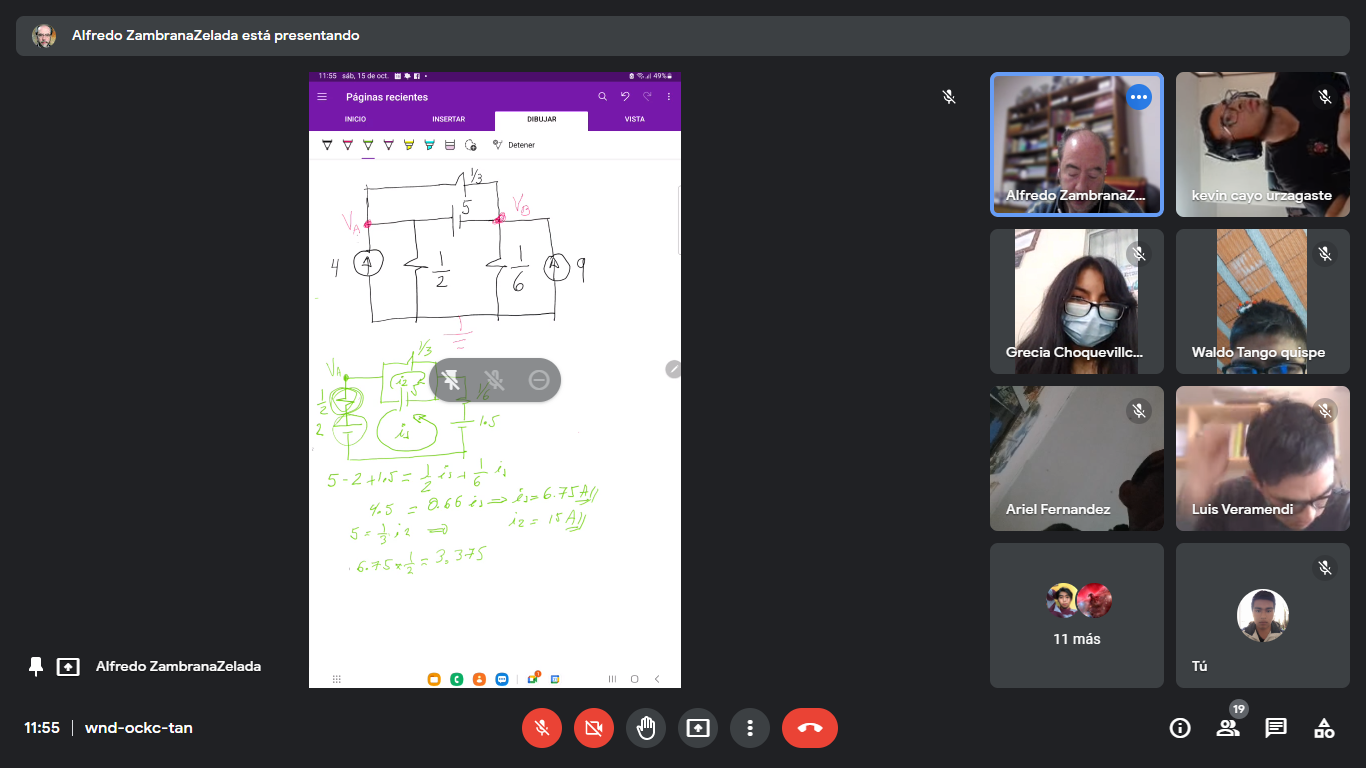 Alfredo ZambranaZelada está presentando
11:55 sáb, 15 de oct.
49%
Páginas recientes
INICIO INSERTAR DIBUJAR VISTA
Detener
1/3
5
VA
VB
4
1/2
1/6
9
1/3
VA
i2
1/2
1/6
2
is
1.5
5-2+1.5 = 1/2 is + 1/6 is
4.5 = 0.66 is ⇒ is = 6.75 A//
i2 = 15 A//
5 = 1/3 i2 ⇒
6.75 × 1/2 = 3.375
Alfredo ZambranaZ...
kevin cayo urzagaste
Grecia Choquevillc...
Waldo Tango quispe
Ariel Fernandez
Luis Veramendi
11 más
Tú
Alfredo ZambranaZelada
11:55 | wnd-ockc-tan
19